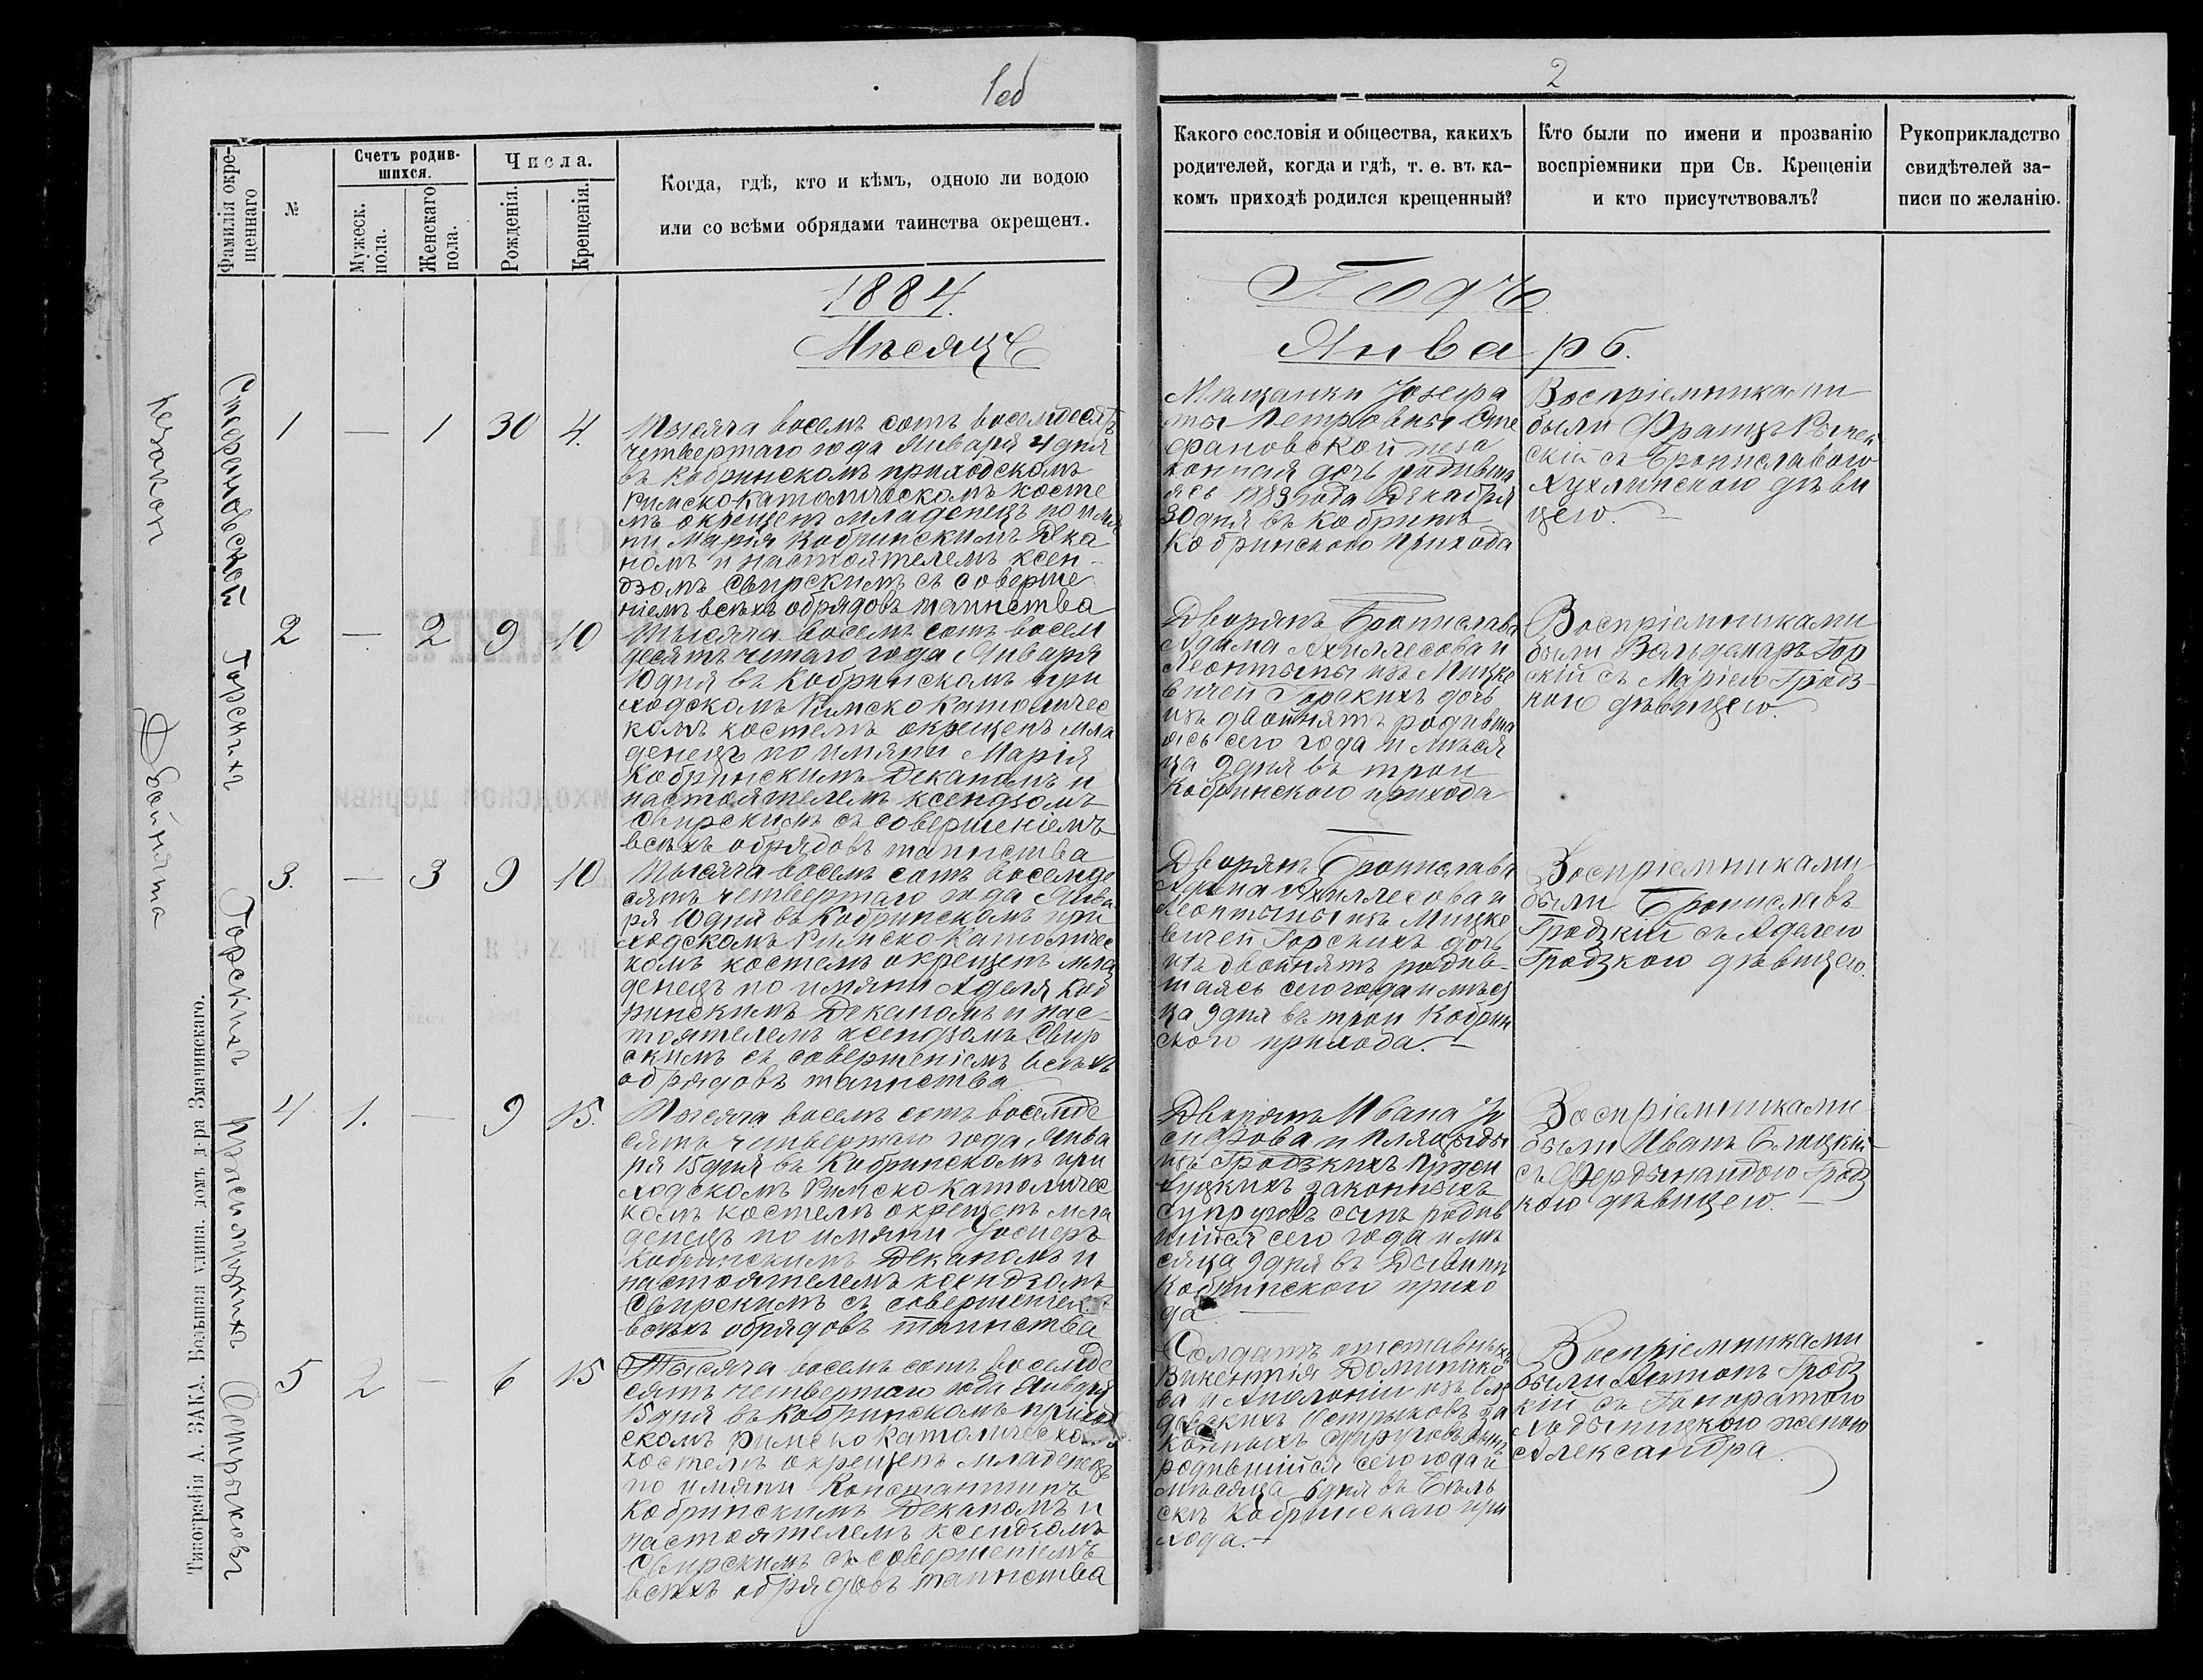 1об
2
Фамилія окре-
щеннаго
№
Счетъ родив-
шихся.
Мужеск.
пола.
Женскаго
пола.
Числа.
Рожденія.
Крещенія.
Когда, гдѣ, кто и кѣмъ, одною ли водою
или со всѣми обрядами таинства окрещенъ.
Какого сословія и общества, какихъ
родителей, когда и гдѣ, т. е. въ ка-
комъ приходѣ родился крещенный?
Кто были по имени и прозванію
воспріемники при Св. Крещеніи
и кто присутствовалъ?
Рукоприкладство
свидѣтелей за-
писи по желанію.
1884.
Годъ
Мѣсяцъ
Январь.
незакон
Стефановской
1 — 1 30 4.
Тысяча восемъ сотъ восемдесятъ
четвертаго года Января 4 дня
въ Кобринскомъ приходскомъ
Римско Католическомъ косте
лѣ окрещенъ младенецъ по имя
ни Марія Кобринскимъ Дека
номъ и настоятелемъ ксен-
дзомъ Свирскимъ съ соверше
ніемъ всѣхъ обрядовъ таинства
Мѣщанки Іозефа
ты Петровны Сте
фановской неза
конная дочь родивша
яся 1883 года Декабря
30 дня въ Кобринѣ
Кобринского прихода
Воспріемниками
были Францъ
скій съ Брониславою
Кухлинскою дѣви
цею.
Двойнята
Горскихъ
2 — 2 9 10
Тысяча восемъ сотъ восем
десятъ четаго года Января
10 дня въ Кобринскомъ при
ходскомъ Римско Католичес
комъ костелѣ окрещенъ мла
денецъ по имяни Марія
Кобринскимъ Деканомъ и
настоятелемъ ксендзомъ
Свирскимъ съ совершеніемъ
всѣхъ обрядовъ таинства
Дворянъ Бронислава
Адама Ахиллесова и
Леонтыны изъ Мицке
вичей Горскихъ дочь
изъ двойнятъ родивша
яся сего года и мѣся
ца 9 дня въ трои
Кобринского прихода
Воспріемниками
были Вальдемаръ Гор
скій съ Маріею Гродз-
кою дѣвицею.
Горскихъ
3. — 3 9 10
Тысяча восемъ сотъ восемде
сятъ четвертаго года Янва
ря 10 дня въ Кобринскомъ при
ходскомъ Римско Католичес
комъ костелѣ окрещенъ мла
денецъ по имяни Аделя Коб
ринскимъ Деканомъ и нас-
тоятелемъ ксендзомъ Свир
скимъ съ совершеніемъ всѣхъ
обрядовъ таинства
Дворянъ Бронислава
Адама Ахиллесова и
Леонтыны изъ Мицке
вичей Горскихъ дочь
изъ двойнятъ родив-
шаяся сего года и мѣся
ца 9 дня въ трои Кобрин
ского прихода.
Воспріемниками
были Брониславъ
Гродзкій съ Аделею
Гродзкою дѣвицею.
4 1. — 9 15.
Тысяча восемъ сотъ восемде
сятъ четвертаго года Янва
ря 15 дня въ Кобринскомъ при
ходскомъ Римско Католичес
комъ костелѣ окрещенъ мла
денецъ по имяни Іосифъ
Кобринскимъ Деканомъ и
настоятелемъ ксендзомъ
Свирскимъ съ совершеніемъ
всѣхъ обрядовъ таинства
Дворянъ Ивана
и
изъ Гродзкихъ
законныхъ
супруговъ сынъ родив
шійся сего года и мѣ
сяца 9 дня въ
Кобринского прихо
да
Воспріемниками
были Иванъ
съ Фердынандою Гродз
кою дѣвицею.
5 2 — 6 15
Тысяча восемъ сотъ восемде
сятъ четвертаго года Января
15 дня въ Кобринскомъ приход
скомъ римско католическомъ
костелѣ окрещенъ младенецъ
по имяни Константинъ
Кобринскимъ Деканомъ и
настоятелемъ ксендзомъ
Свирскимъ съ совершеніемъ
всѣхъ обрядовъ таинства
Солдатъ отставныхъ
Викентія Доминико
ва и Аполоніи изъ
за
конныхъ супруговъ сынъ
родившійся сего года и
мѣсяца 6 дня въ
Кобринскаго при
хода.
Воспріемниками
были Антонъ Гродз
кій съ Гоноратою
женою
Александра.
Типографія А. ЗАКА. Большая улица. домъ д-ра Змачинскаго.